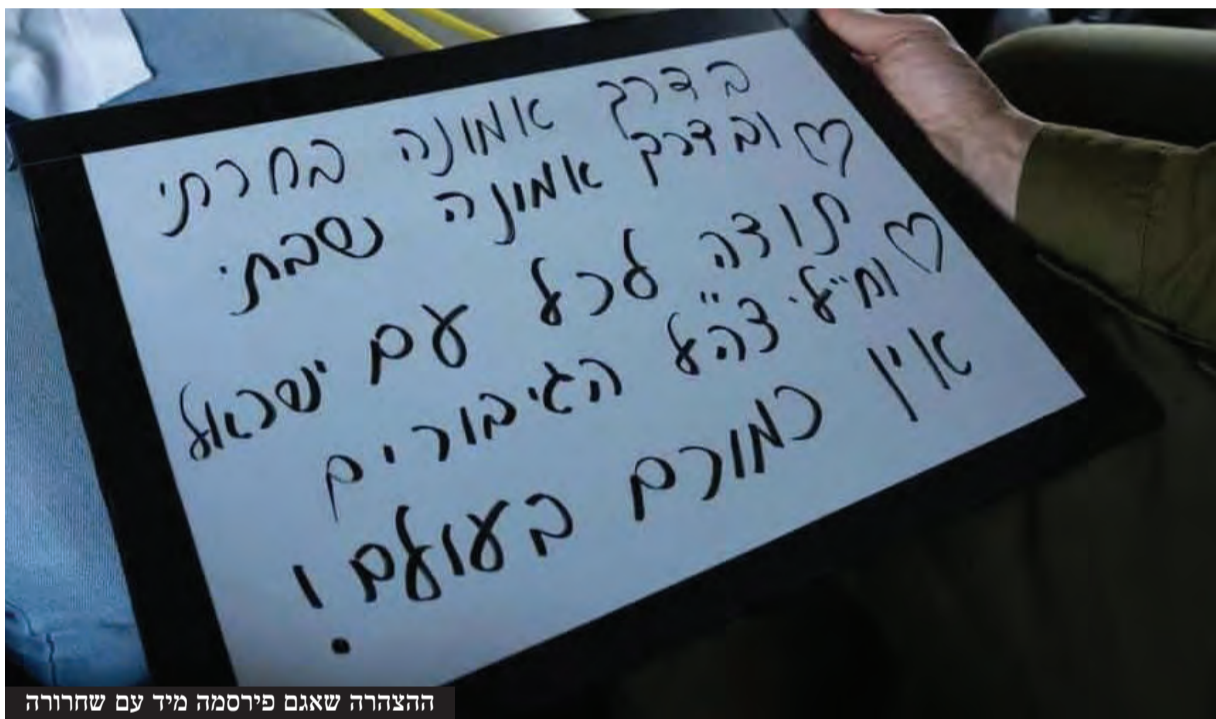 בדרך אמונה בחרתי
ובדרך אמונה נשבתי ♡
תודה לכל עם ישראל
וחיילי צה"ל הגיבורים ♡
אין כמותם בעולם!
ההצהרה שאגם פירסמה מיד עם שחרורה